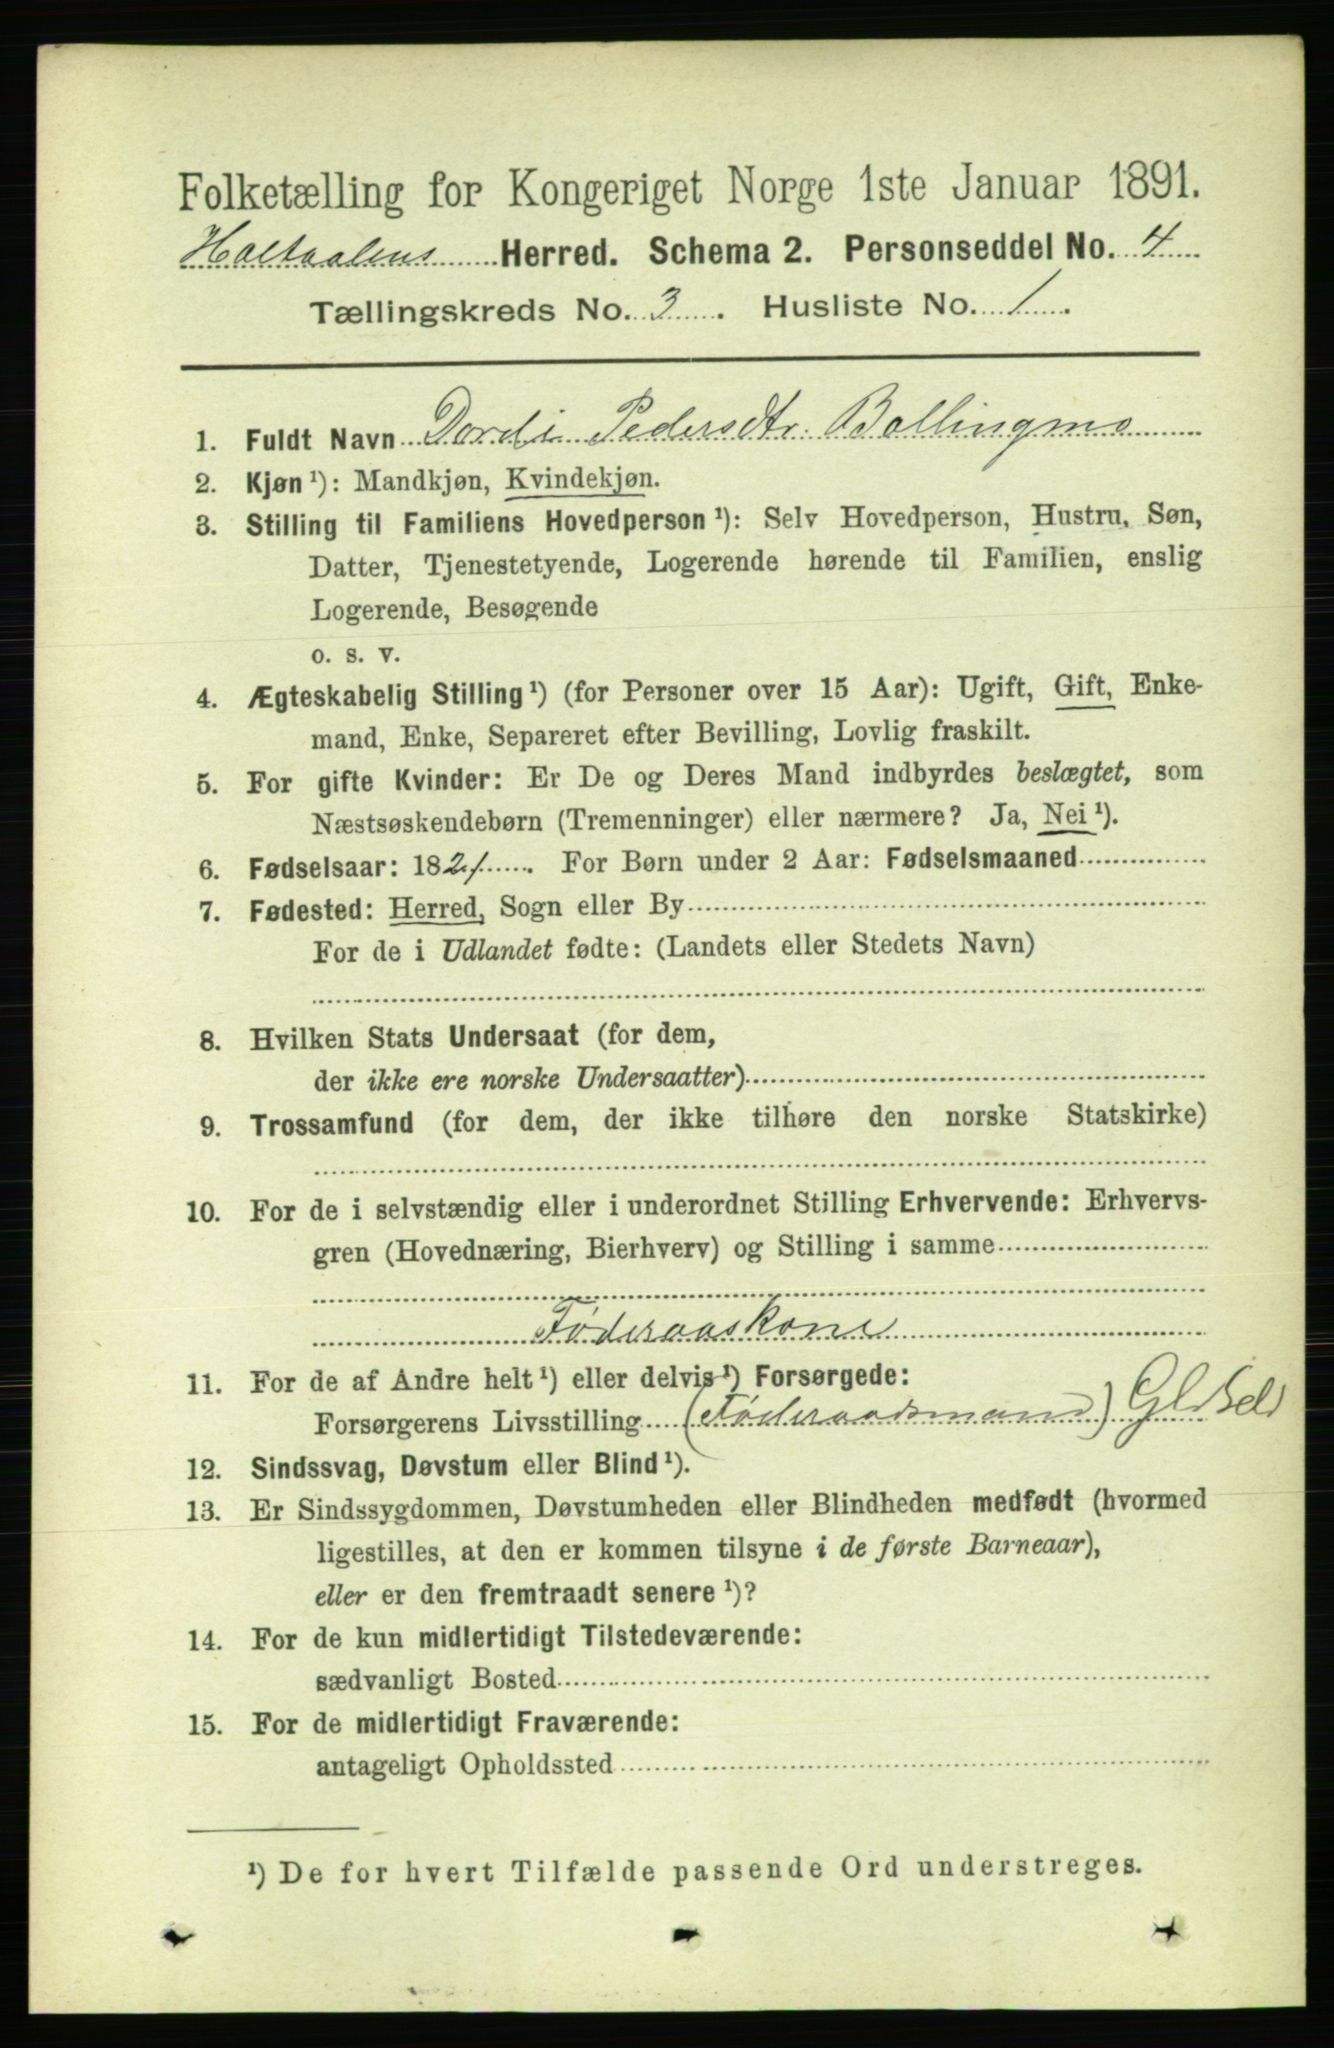 Folketælling for Kongeriget Norge 1ste Januar 1891.
Holtaalens Herred. Schema 2. Personseddel No. 4
Tællingskreds No. 3. Husliste No. 1.
1. Fuldt Navn Dordi Pedersdtr. Ballingmo
2. Kjøn ¹): Mandkjøn, Kvindekjøn.
3. Stilling til Familiens Hovedperson ¹): Selv Hovedperson, Hustru, Søn,
Datter, Tjenestetyende, Logerende hørende til Familien, enslig
Logerende, Besøgende
o. s. v.
4. Ægteskabelig Stilling ¹) (for Personer over 15 Aar): Ugift, Gift, Enke-
mand, Enke, Separeret efter Bevilling, Lovlig fraskilt.
5. For gifte Kvinder: Er De og Deres Mand indbyrdes beslægtet, som
Næstsøskendebørn (Tremenninger) eller nærmere? Ja, Nei ¹).
6. Fødselsaar: 1821. For Børn under 2 Aar: Fødselsmaaned
7. Fødested: Herred, Sogn eller By
For de i Udlandet fødte: (Landets eller Stedets Navn)
8. Hvilken Stats Undersaat (for dem,
der ikke ere norske Undersaatter)
9. Trossamfund (for dem, der ikke tilhøre den norske Statskirke)
10. For de i selvstændig eller i underordnet Stilling Erhvervende: Erhvervs-
gren (Hovednæring, Bierhverv) og Stilling i samme
Føderaaskone
11. For de af Andre helt ¹) eller delvis ¹) Forsørgede:
Forsørgerens Livsstilling (Føderaadsmand)
12. Sindssvag, Døvstum eller Blind ¹).
13. Er Sindssygdommen, Døvstumheden eller Blindheden medfødt (hvormed
ligestilles, at den er kommen tilsyne i de første Barneaar),
eller er den fremtraadt senere ¹)?
14. For de kun midlertidigt Tilstedeværende:
sædvanligt Bosted
15. For de midlertidigt Fraværende:
antageligt Opholdssted
¹) De for hvert Tilfælde passende Ord understreges.